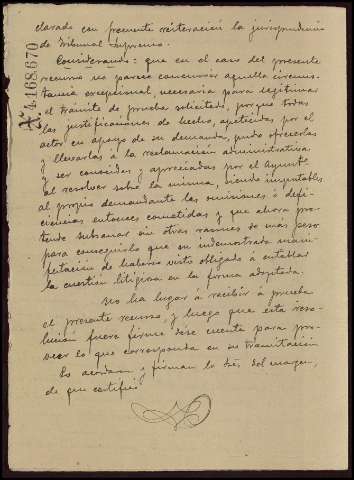 clarado con frecuente reiteración la jurisprudencia
del Tribunal Supremo.
Considerando: que en el caso del presente
recurso no parece concurrir aquella circuns-
tancia excepcional, necesaria para legitimar
el trámite de prueba solicitado, porque todas
las justificaciones de hecho, apetecidas por el
actor en apoyo de su demanda, pudo ofrecerlas
y llevarlas á la reclamación administrativa
y ser conocidas y apreciadas por el Ayunt.º
al resolver sobre la misma, siendo imputables
al propio demandante las omisiones ó defi-
ciencias entonces cometidas y que ahora pre-
tende subsanar sin otras razones de más peso
para conseguirlo que su indemostrada mani-
festación de haberse visto obligado á entablar
la cuestión litigiosa en la forma adoptada.
No ha lugar á recibir á prueba
el presente recurso, y luego que esta reso-
lución fuere firme dése cuenta para pro-
veer lo que corresponda en su tramitación
Lo acordaron y firman los Sres. del margen,
de que certifico
4.168.670